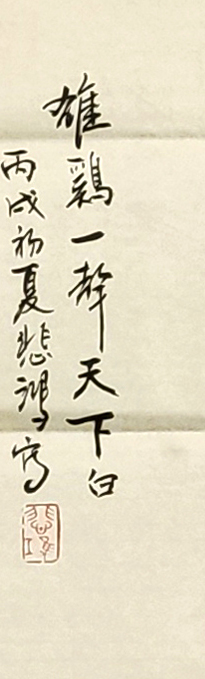 雄鷄一聲天下白
丙戌初夏悲鴻寫
悲鴻